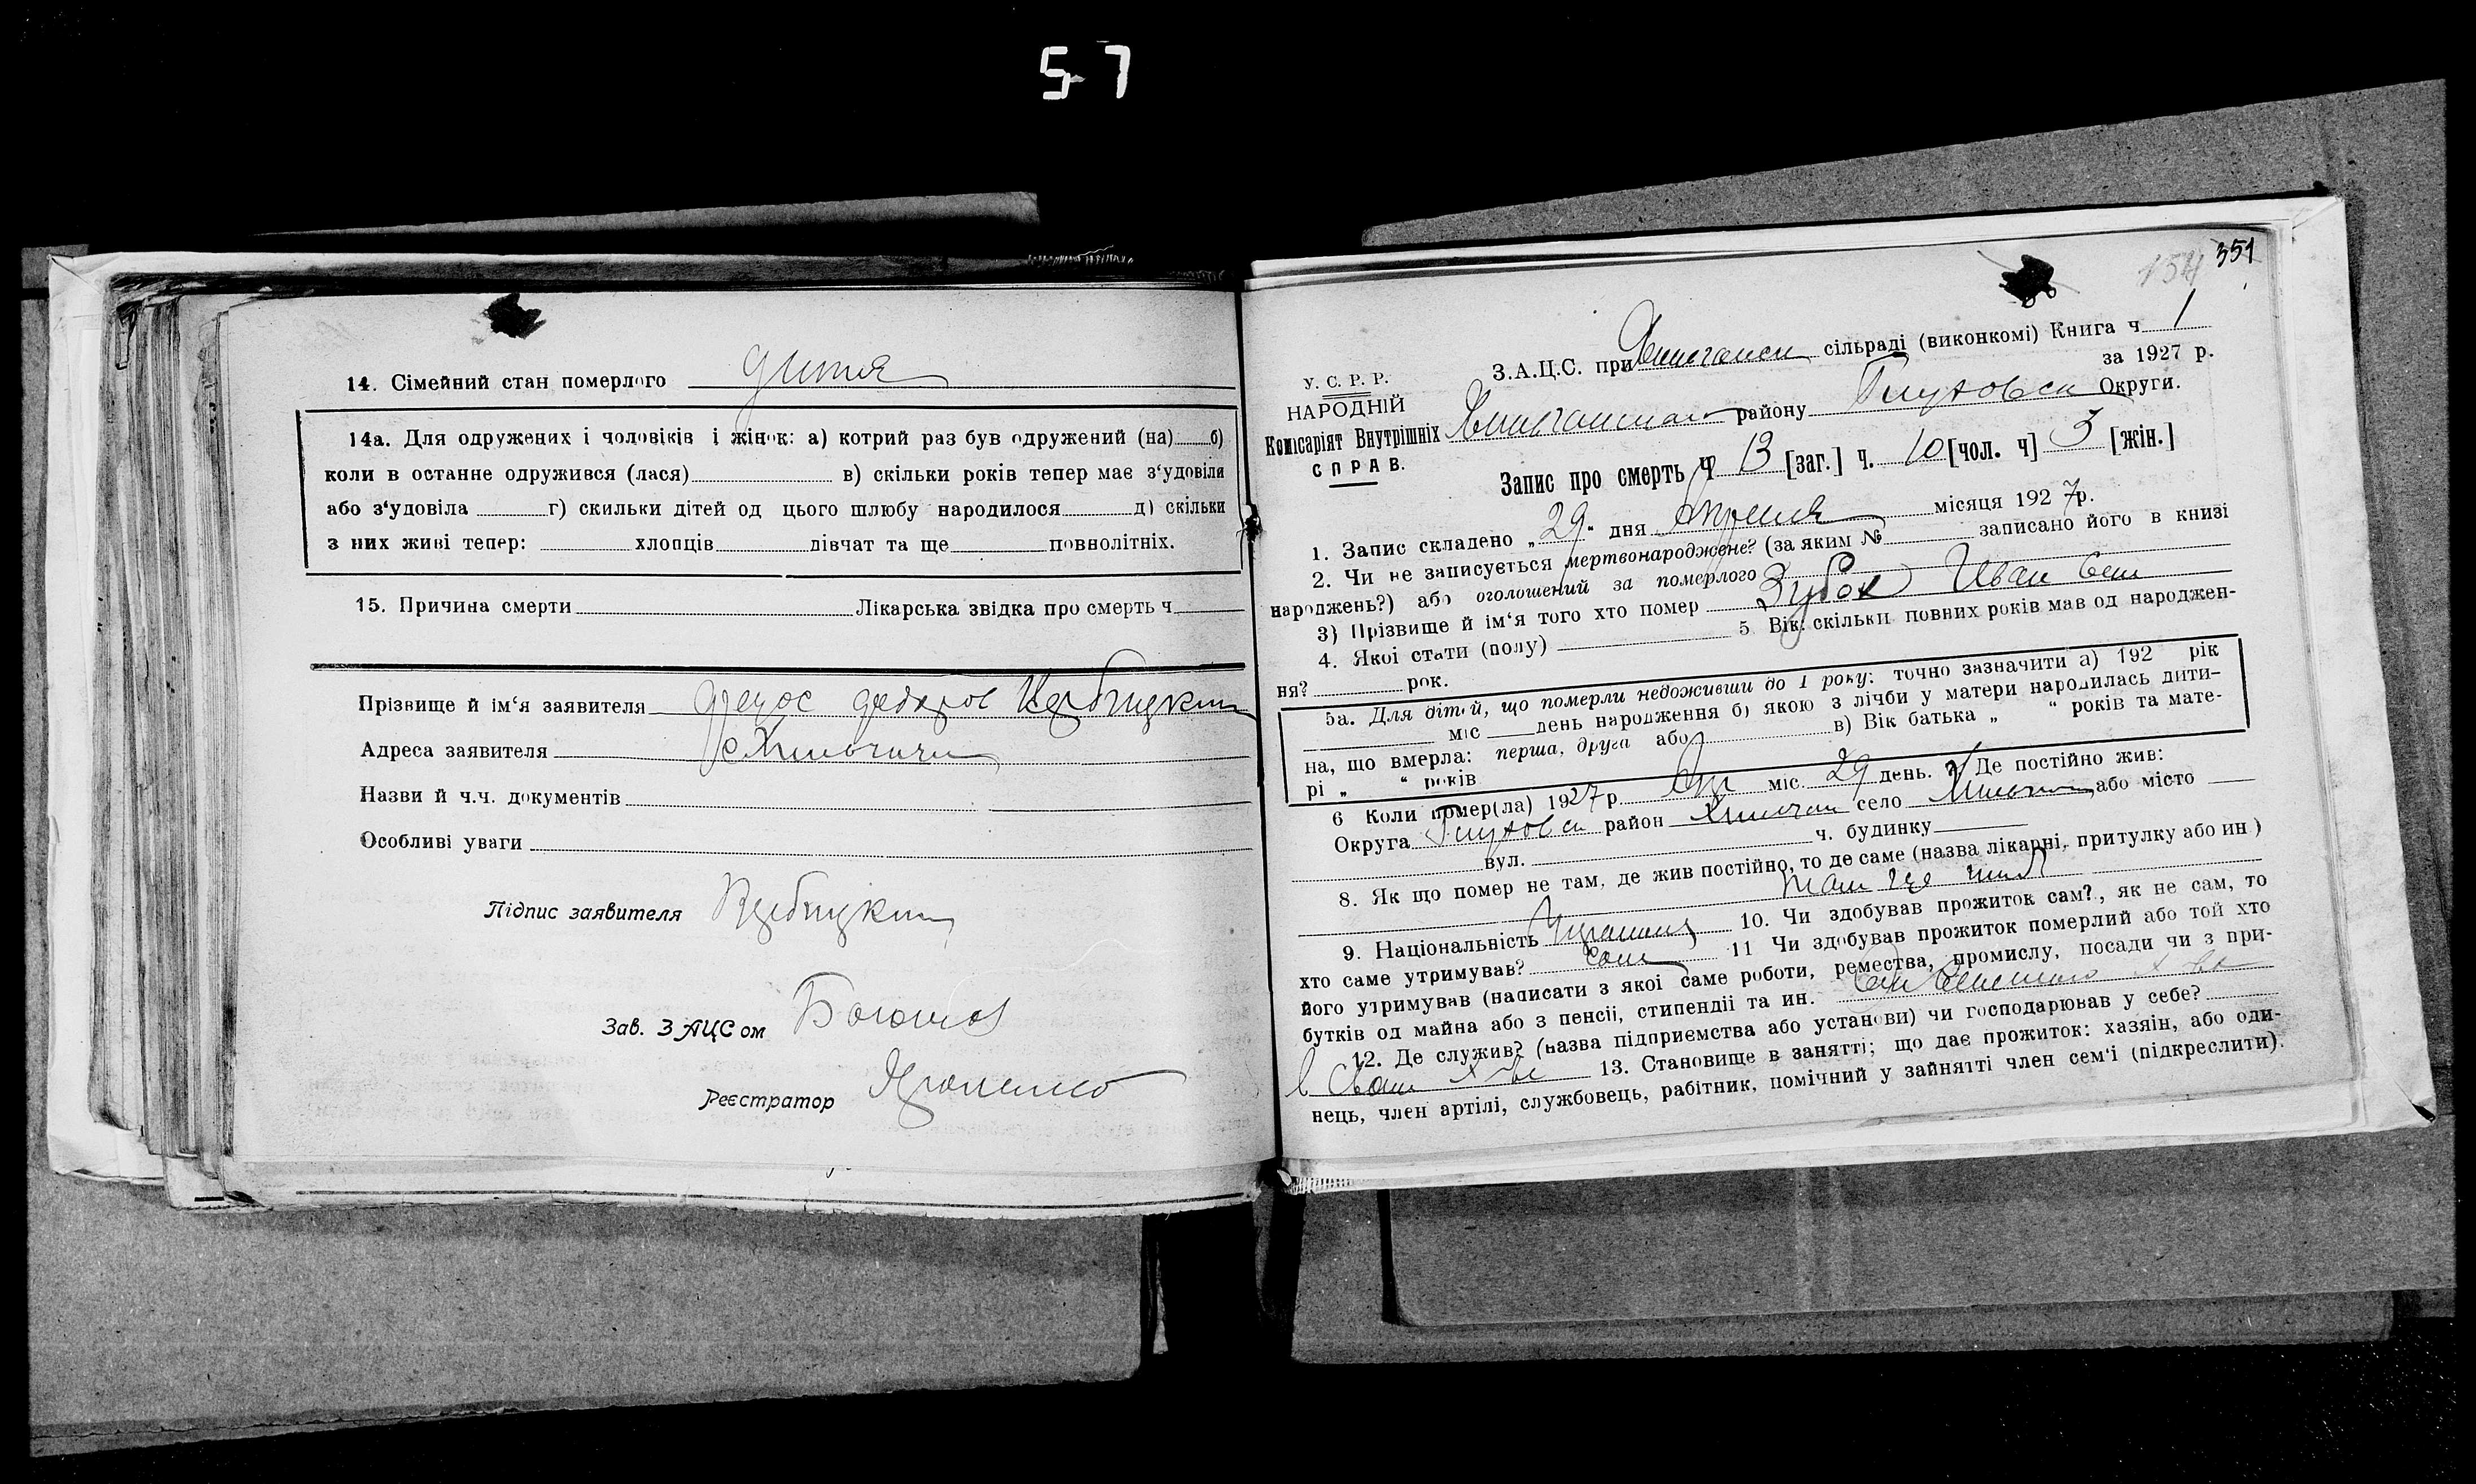 5-7
14. Сімейний стан померлого дитя
14а. Для одружених і чоловіків і жінок: а) котрий раз був одружений (на) б)
коли в останне одружився (лася) в) скільки років тепер має з‘удовіля
або з‘удовіла г) скильки дітей од цього шлюбу народилося д) скільки
з них живі тепер: хлопців дівчат та ще повнолітніх.
15. Причина смерти Лікарська звідка про смерть ч.
Прізвище й ім‘я заявителя
Адреса заявителя
Назви й ч.ч. документів
Особливі уваги
Підпис заявителя
Зав. ЗАЦСом
Реєстратор
351
154
У. С. Р. Р.
НАРОДНІЙ
Комісаріят Внутрішніх
СПРАВ.
З.А.Ц.С. при сільраді (виконкомі) Книга ч 1
за 1927 р.
району Глуховск Округи.
Запис про смерть Ч 13 [заг.] ч. 10 [чол. ч] 3 [жін.]
1. Запис складено „29“ дня Апреля місяця 1927р.
2. Чи не записується мертвонароджене? (за яким № записано його в книзі
народжень?) або оголошений за померлого
3) Прізвище й ім‘я того хто помер Зубок Иван
4. Якої стати (полу) 5 Вік: скільки повних років мав од народжен-
ня? рок.
5а. Для дітей, що померли недоживши до 1 року: точно зазначити а) 192 рік
міс день народження б) якою з лічби у матери народилась дити-
на, що вмерла: перша, друга або в) Вік батька „ “ років та мате-
рі „ “ років
6 Коли помер(ла) 1927 р. Ап міс 29 день. 7 Де постійно жив:
Округа Глуховск район село або місто
вул. ч. будинку
8. Як що помер не там, де жив постійно, то де саме (назва лікарні, притулку або ин)
там где жил
9. Національність 10. Чи здобував прожиток сам?, як не сам, то
хто саме утримував? 11 Чи здобував прожиток померлий або той хто
його утримував (написати з якої саме роботи, ремества, промислу, посади чи з при-
бутків од майна або з пенсії, стипендії та ин.
12. Де служив? (назва підприємства або установи) чи господарював у себе?
13. Становище в занятті; що дає прожиток: хазяін, або оди-
нець, член артілі, службовець, рабітник, помічний у зайнятті член сем‘і (підкреслити).